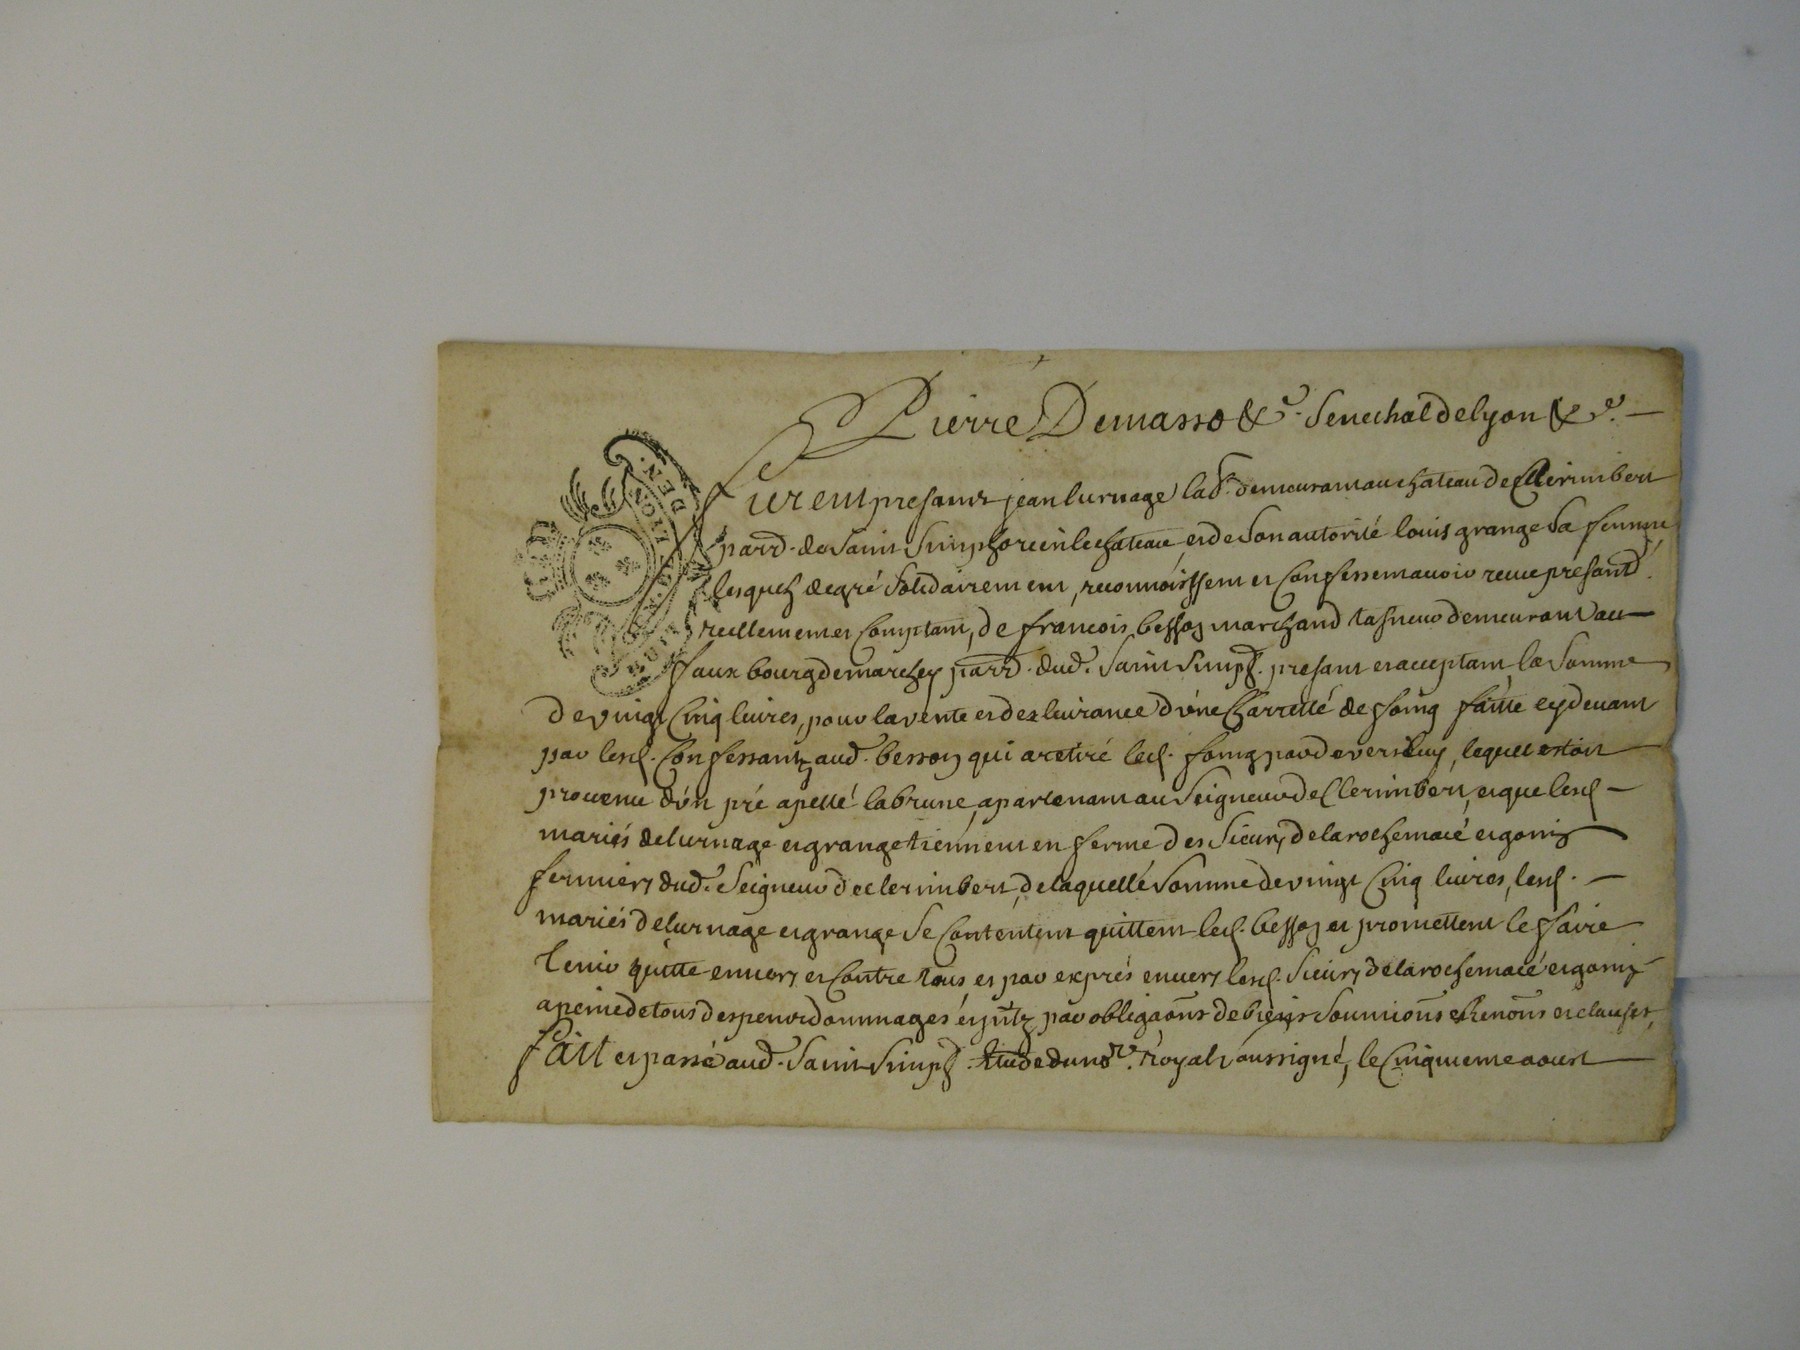 Pierre Demasso &c. Senechal de lyon &c.
furent presants jean lurnage lad. demeurant au chateau de Clerimbert
parr. de Saint Simphorien le chateau, et de Son autorité louis grange Sa femme
lesquels de gré Solidairement, reconnoissent et Confessent avoir receu presant.
reellement et Comptant, de francois besson marchand taneur demeurant au
faux bourg de marchey parr. dud. Saint Simph. presant et acceptant, la Somme
de vingt Cinq livres, pour la vente et dezlivrance d'une Charretté de foing faitte cy devant
par lesd. Confessants aud. besson qui a retiré led. foing par devers luy, lequel estoit
provenu d'un pré apellé la brune, apartenant au Seigneur de Clerimbert, et que lesd.
mariés de lurnage et grange tiennent en ferme des Sieurs de la rochemacé et gonin
fermiers dud. Seigneur de clerimbert, de laquellé Somme de vingt Cinq livres, lesd.
mariés de lurnage et grange Se Contentent quittent led. besson et promettent le faire
tenir quitte envers et Contre tous et par exprés envers lesd. Sieurs de la rochemacé et gonin
a peine de tous despens dommages et jntz par obligaons de biens Soumions Renons et clauses,
fait et passé aud. Saint Simph. Etude du nore. Royal Soussigné, le Cinquieme aoust